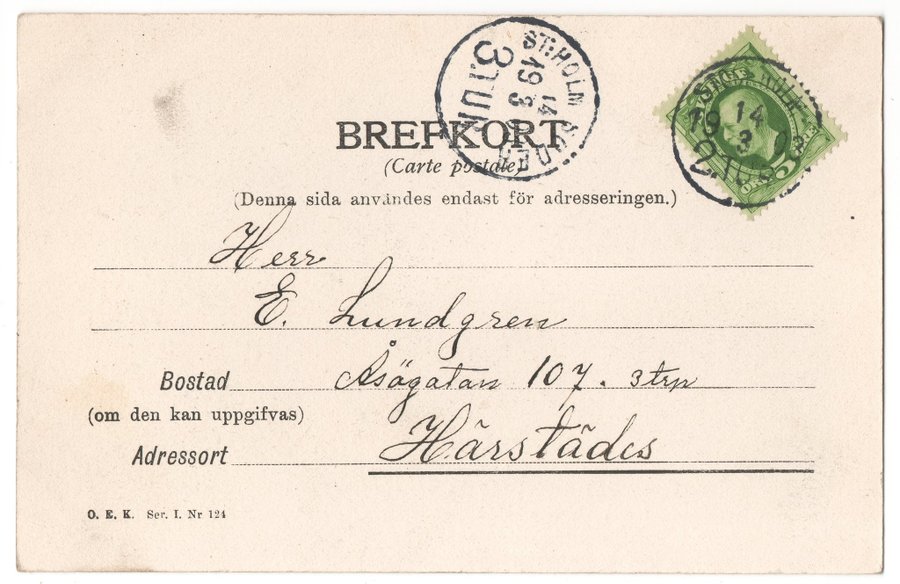 BREFKORT
(Carte postale)
(Denna sida användes endast för adresseringen.)
ST:HOLM
14
19 3
3.TUR
14
19 3
2.TUR
Herr
E. Lundgren
Bostad Åsögatan 107. 3 trp
(om den kan uppgifvas)
Adressort Härstädes
O. E. K. Ser. I. Nr 124